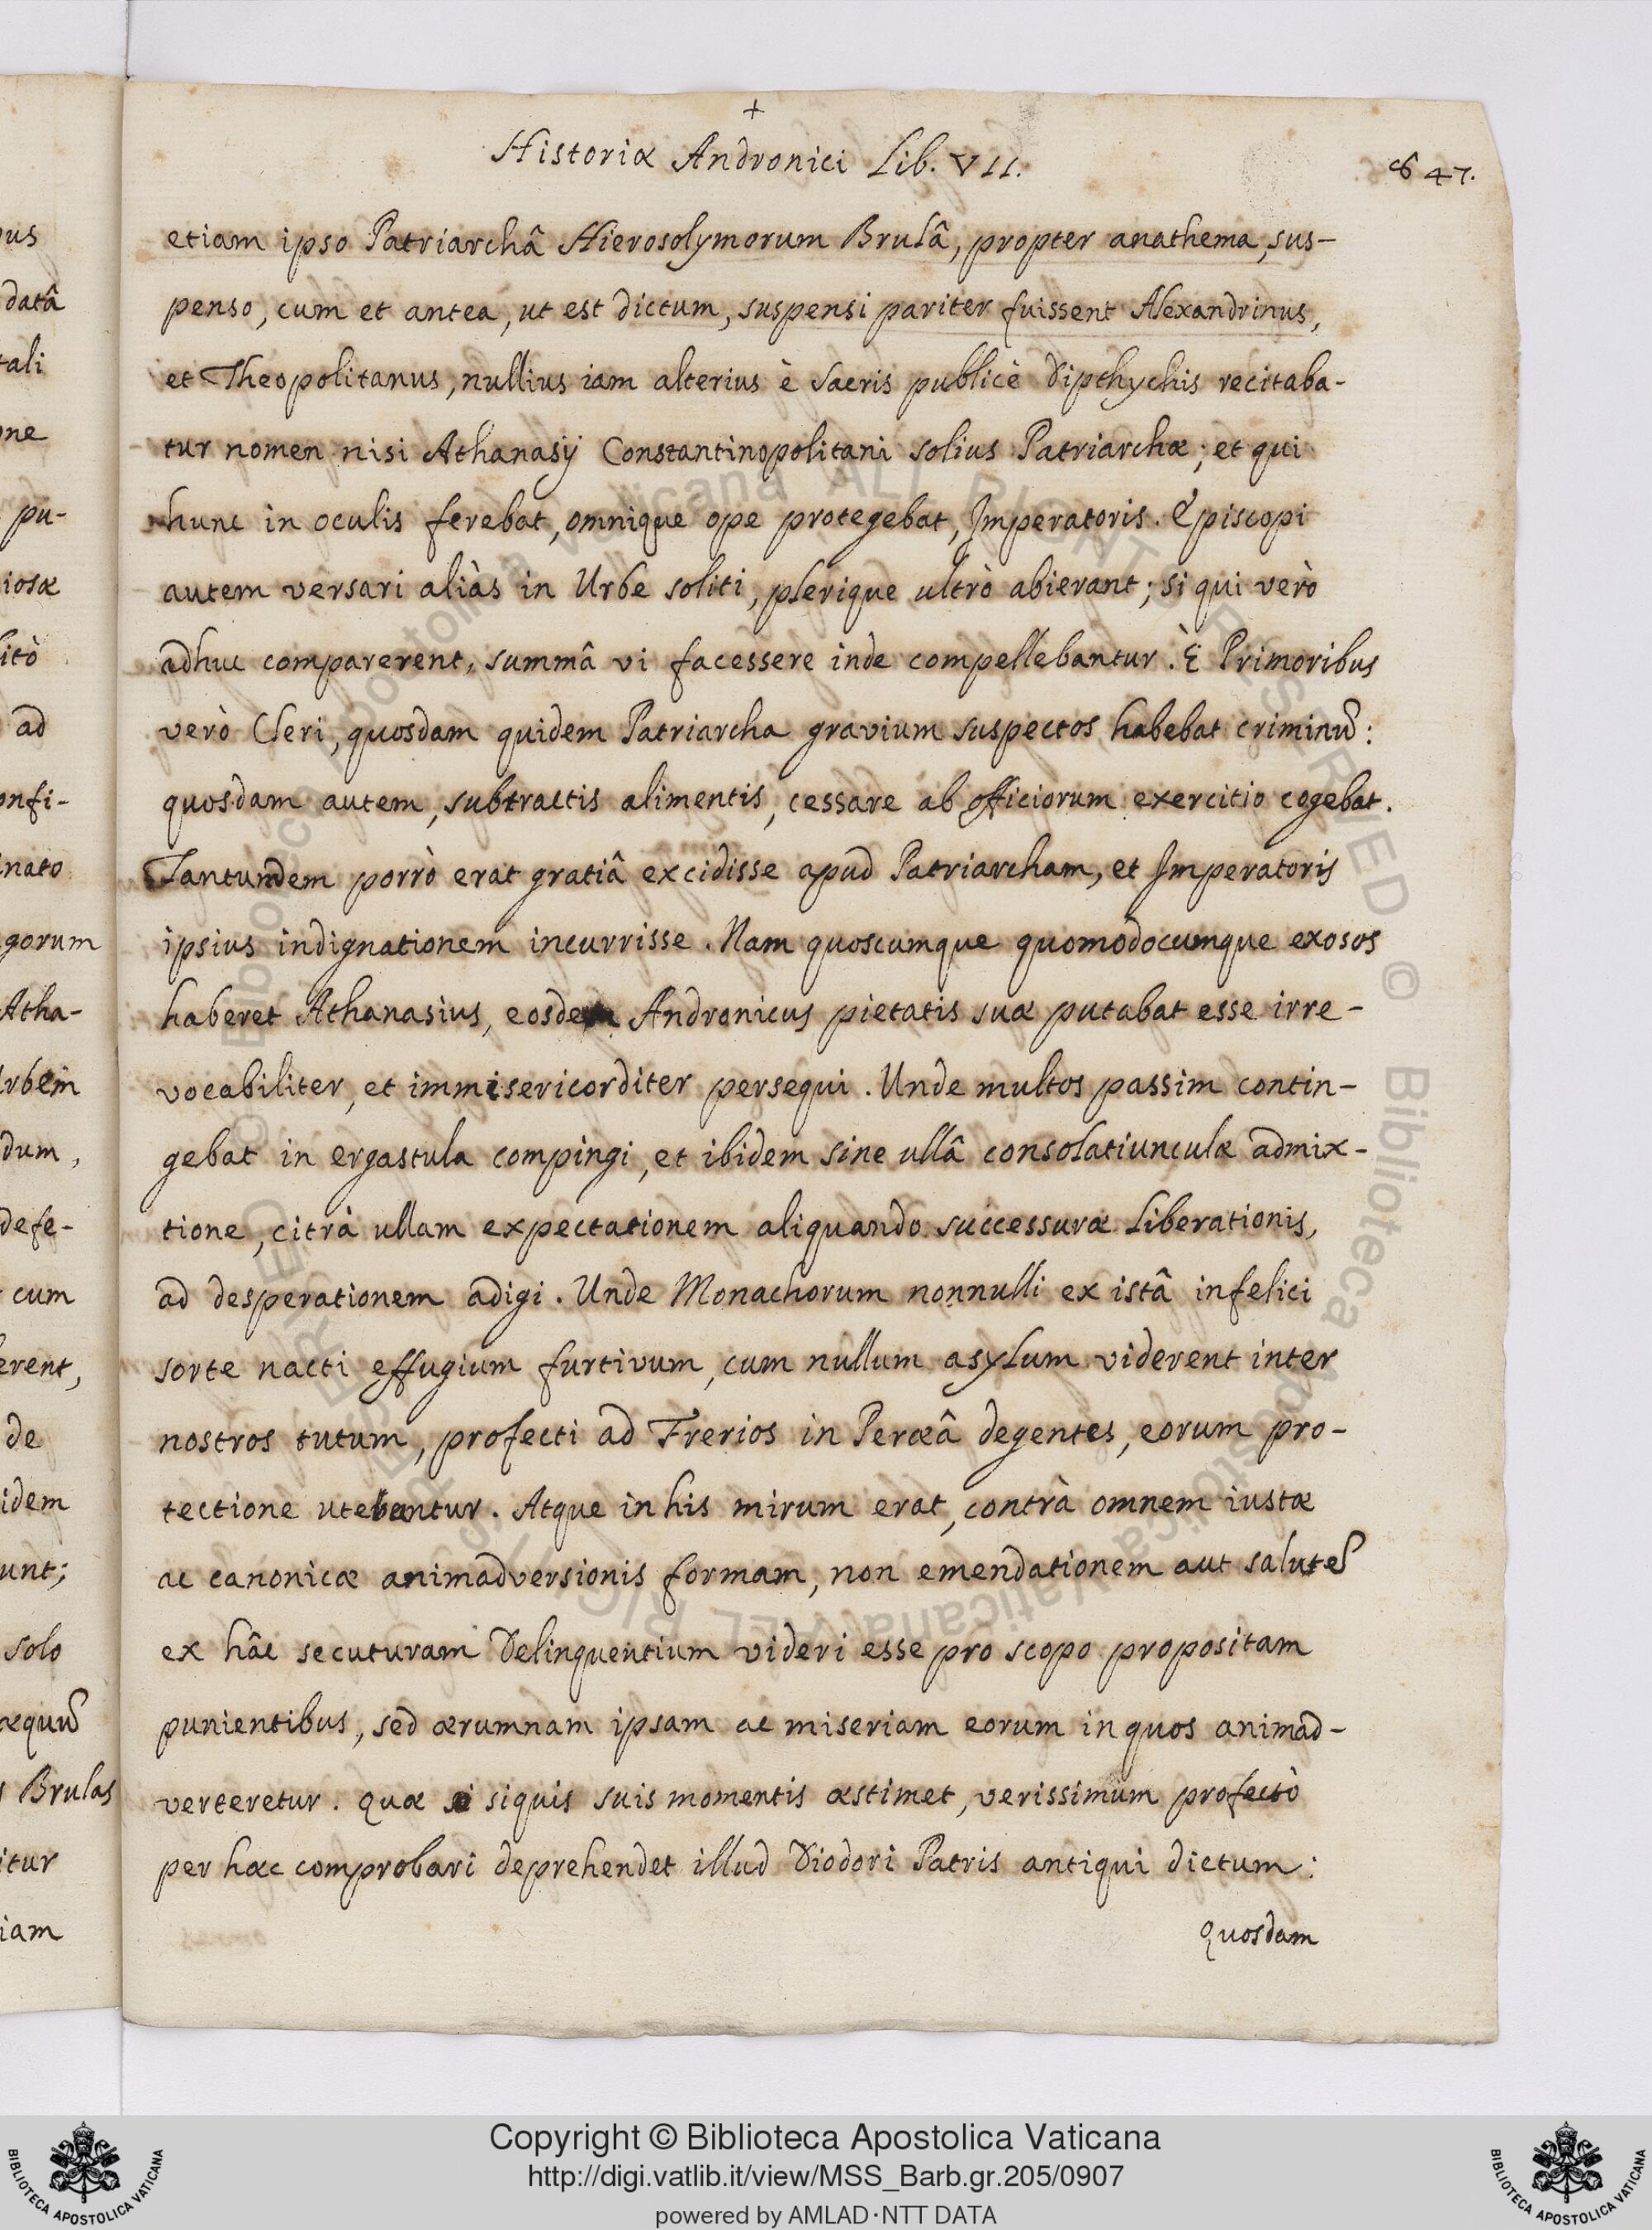 +
Historiæ Andronici Lib. VII.
847.
etiam ipso Patriarchâ Hierosolymorum Brulâ, propter anathema, sus-
penso, cum et antea, ut est dictum, suspensi pariter fuissent Alexandrinus,
et Theopolitanus, nullius iam alterius è sacris publicè Dipthychis recitaba-
tur nomen nisi Athanasij Constantinopolitani solius Patriarchæ; et qui
hunc in oculis ferebat, omnique ope protegebat, Imperatoris. Episcopi
autem versari aliàs in Urbe soliti, plerique ultrò abierant; si qui verò
adhuc comparerent, summâ vi facessere inde compellebantur. È Primoribus
verò Cleri, quosdam quidem Patriarcha gravium suspectos habebat criminũ:
quosdam autem, subtractis alimentis, cessare ab officiorum exercitio cogebat.
Tantundem porrò erat gratiâ excidisse apud Patriarcham, et Imperatoris
ipsius indignationem incurrisse. Nam quoscumque quomodocumque exosos
haberet Athanasius, eosdem Andronicus pietatis suæ putabat esse irre-
vocabiliter, et immisericorditer persequi. Unde multos passim contin-
gebat in ergastula compingi, et ibidem sine ullâ consolatiunculæ admix-
tione, citrà ullam expectationem aliquando successuræ Liberationis,
ad desperationem adigi. Unde Monachorum nonnulli ex istâ infelici
sorte nacti effugium furtivum, cum nullum asylum viderent inter
nostros tutum, profecti ad Frerios in Peræâ degentes, eorum pro-
tectione utebantur. Atque in his mirum erat, contrà omnem iustæ
ac canonicæ animadversionis formam, non emendationem aut salutẽ
ex hâc secuturam Delinquentium videri esse pro scopo propositam
punientibus, sed ærumnam ipsam ac miseriam eorum in quos animad-
verteretur. Quæ si siquis suis momentis æstimet, verissimum profectò
per hæc comprobari deprehendet illud Diodori Patris antiqui dictum:
Quosdam
us
datâ
tali
one
pu-
iosæ
litò
ad
onfi-
nato
gorum
Atha-
Urbem
dum,
defe-
cum
erent,
de
idem
unt;
solo
æquũ
Brulas
itur
iam
Copyright © Biblioteca Apostolica Vaticana
http://digi.vatlib.it/view/MSS_Barb.gr.205/0907
powered by AMLAD·NTT DATA
BIBLIOTECA APOSTOLICA VATICANA
BIBLIOTECA APOSTOLICA VATICANA